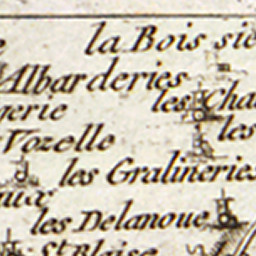 la Bois
Albarderies
les
gerie
les
Vozelle
les Gralineries
les Delanoue
St. Blaise